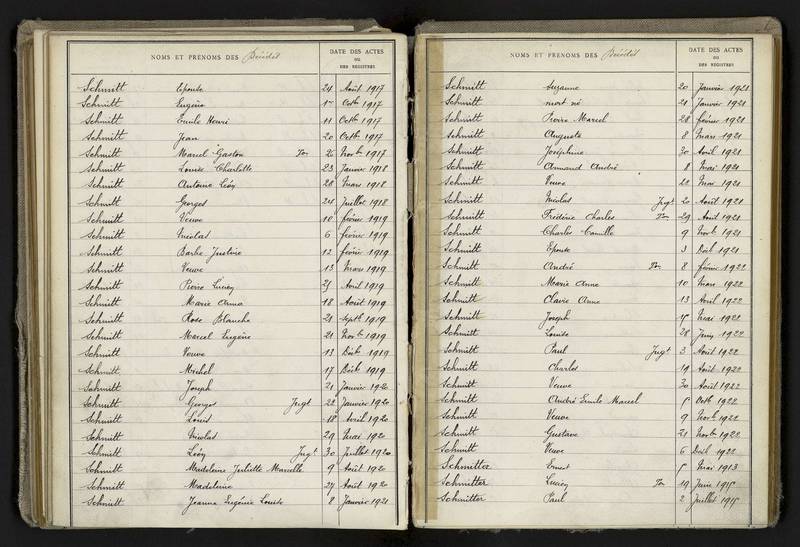 NOMS ET PRÉNOMS DES Décédés
DATE DES ACTES
OU
DES REGISTRES
Schmitt Epouse 24 Août 1917
Schmitt Eugène 1er Octb 1917
Schmitt Emile Henri 11 Octb 1917
Schmitt Jean 20 Octb 1917
Schmitt Marcel Gaston Ton 26 Novb 1917
Schmitt Louise Charlotte 23 Janvier 1918
Schmitt Antoine Léon 28 Mars 1918
Schmitt Georges 24 Juillet 1918
Schmitt Veuve 10 février 1919
Schmitt Nicolas 6 février 1919
Schmitt Barbe Justine 12 février 1919
Schmitt Veuve 13 Mars 1919
Schmitt Pierre Lucien Avril 1919
Schmitt Marie Anna 18 Août 1919
Schmitt Rose Blanche 21 Septb 1919
Schmitt Marcel Eugène 21 Novb 1919
Schmitt Veuve 13 Décb 1919
Schmitt Michel 17 Décb 1919
Schmitt Joseph 21 Janvier 1920
Schmitt Georges Jugt 22 Janvier 1920
Schmitt Louis 18 Avril 1920
Schmitt Nicolas 29 Mai 1920
Schmitt Léon Jugt 30 Juillet 1920
Schmitt Madeleine Juliette Marcelle 9 Août 1920
Schmitt Madeleine 27 Août 1920
Schmitt Jeanne Eugénie Louise 8 Janvier 1921
NOMS ET PRÉNOMS DES Décédés
DATE DES ACTES
OU
DES REGISTRES
Schmitt Suzanne 20 Janvier 1921
Schmitt mort né 21 Janvier 1921
Schmitt Pierre Marcel 28 février 1921
Schmitt Auguste 8 Mars 1921
Schmitt Joséphine 30 Avril 1921
Schmitt Armand André 8 Mai 1921
Schmitt Veuve 22 Mai 1921
Schmitt Nicolas Jugt 20 Août 1921
Schmitt Frédéric Charles Ton 29 Août 1921
Schmitt Charles Camille 9 Novb 1921
Schmitt Epouse 3 Décb 1921
Schmitt André Ton 8 février 1922
Schmitt Marie Anne 10 Mars 1922
Schmitt Claire Anne 13 Avril 1922
Schmitt Joseph 4 Mai 1922
Schmitt Louise 28 Juin 1922
Schmitt Paul Jugt 3 Août 1922
Schmitt Charles 19 Août 1922
Schmitt Veuve 30 Août 1922
Schmitt André Emile Marcel 5 Octb 1922
Schmitt Veuve 9 Novb 1922
Schmitt Gustave 21 Novb 1922
Schmitt Veuve 6 Décb 1922
Schmitter Ernest 5 Mai 1913
Schmitter Lucien Ton 19 Juin 1915
Schmitter Paul 2 Juillet 1915